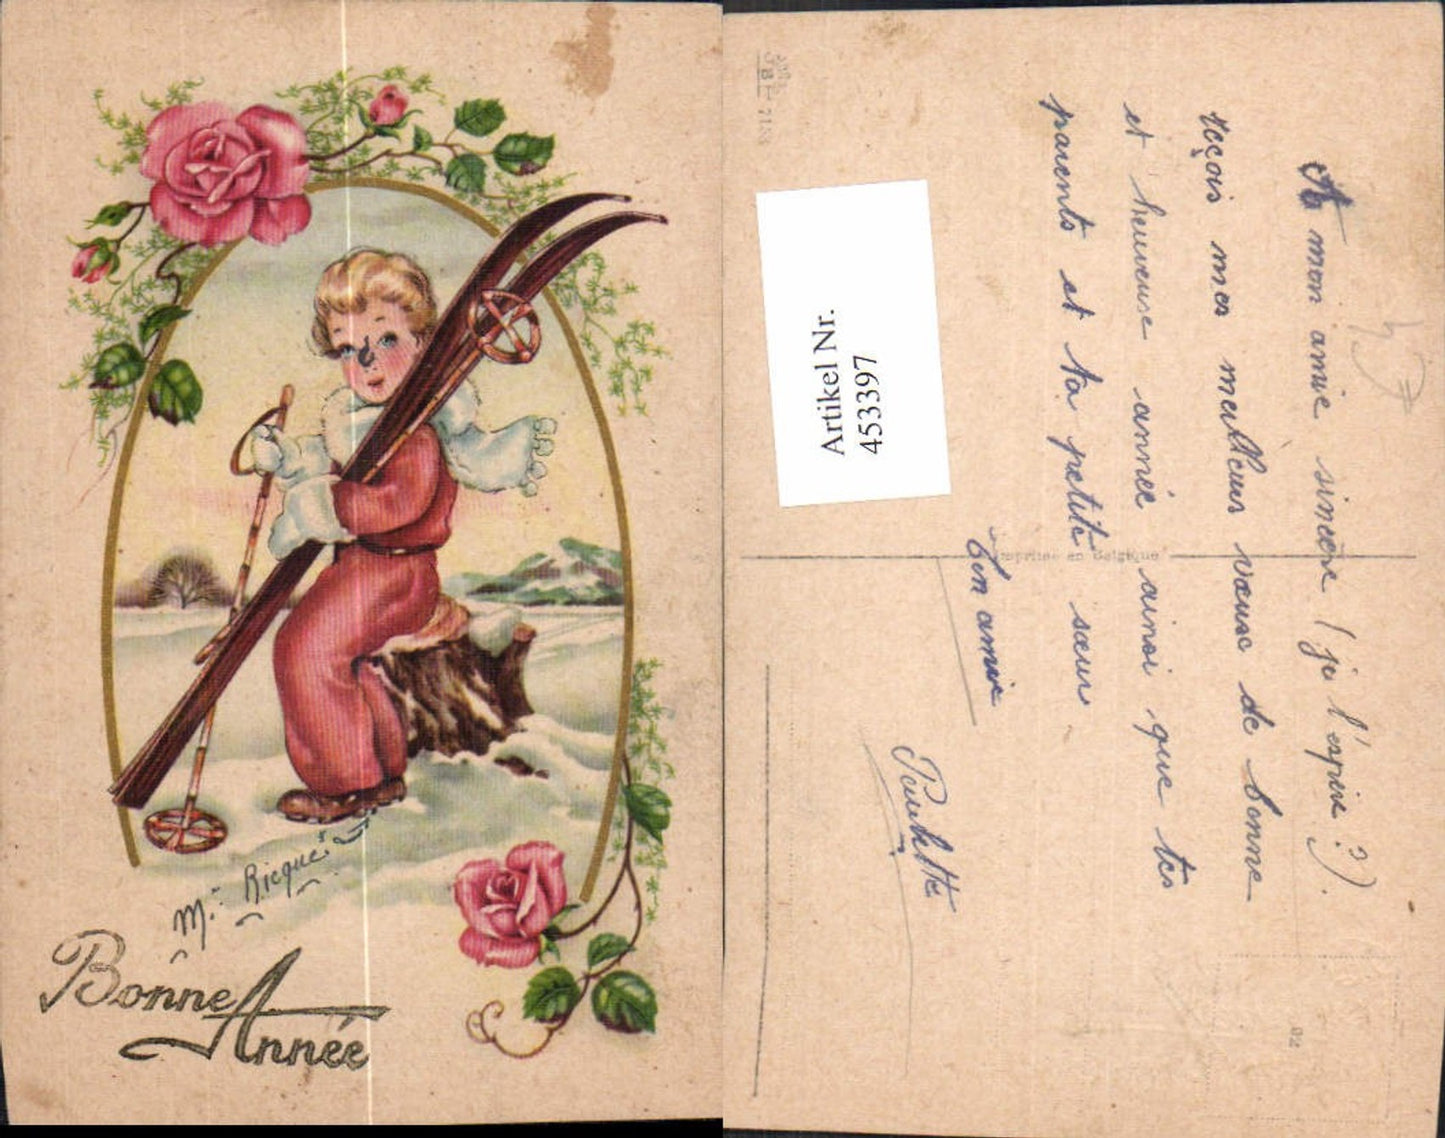 M. Ricque.
Bonne
Année
Artikel Nr.
453397
Imprimé en Belgique
A mon amie sincère (je l'espère ?).
reçois mes meilleurs vœux de bonne
et heureuse année ainsi que tes
parents et ta petite sœur
Ton amie
Paulette